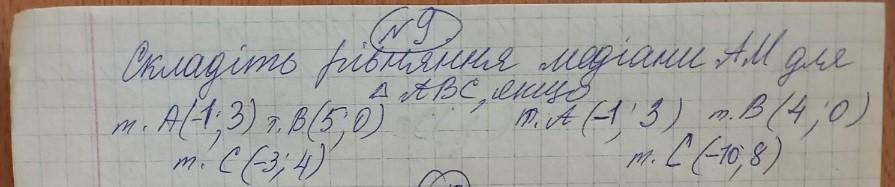 №9.
Складіть рівняння медіани АМ для
△ АВС, якщо
т. А(-1; 3) т. В(5; 0) т. А(-1; 3) т. В(4; 0)
т. С(-3; 4) т. С(-10; 8)